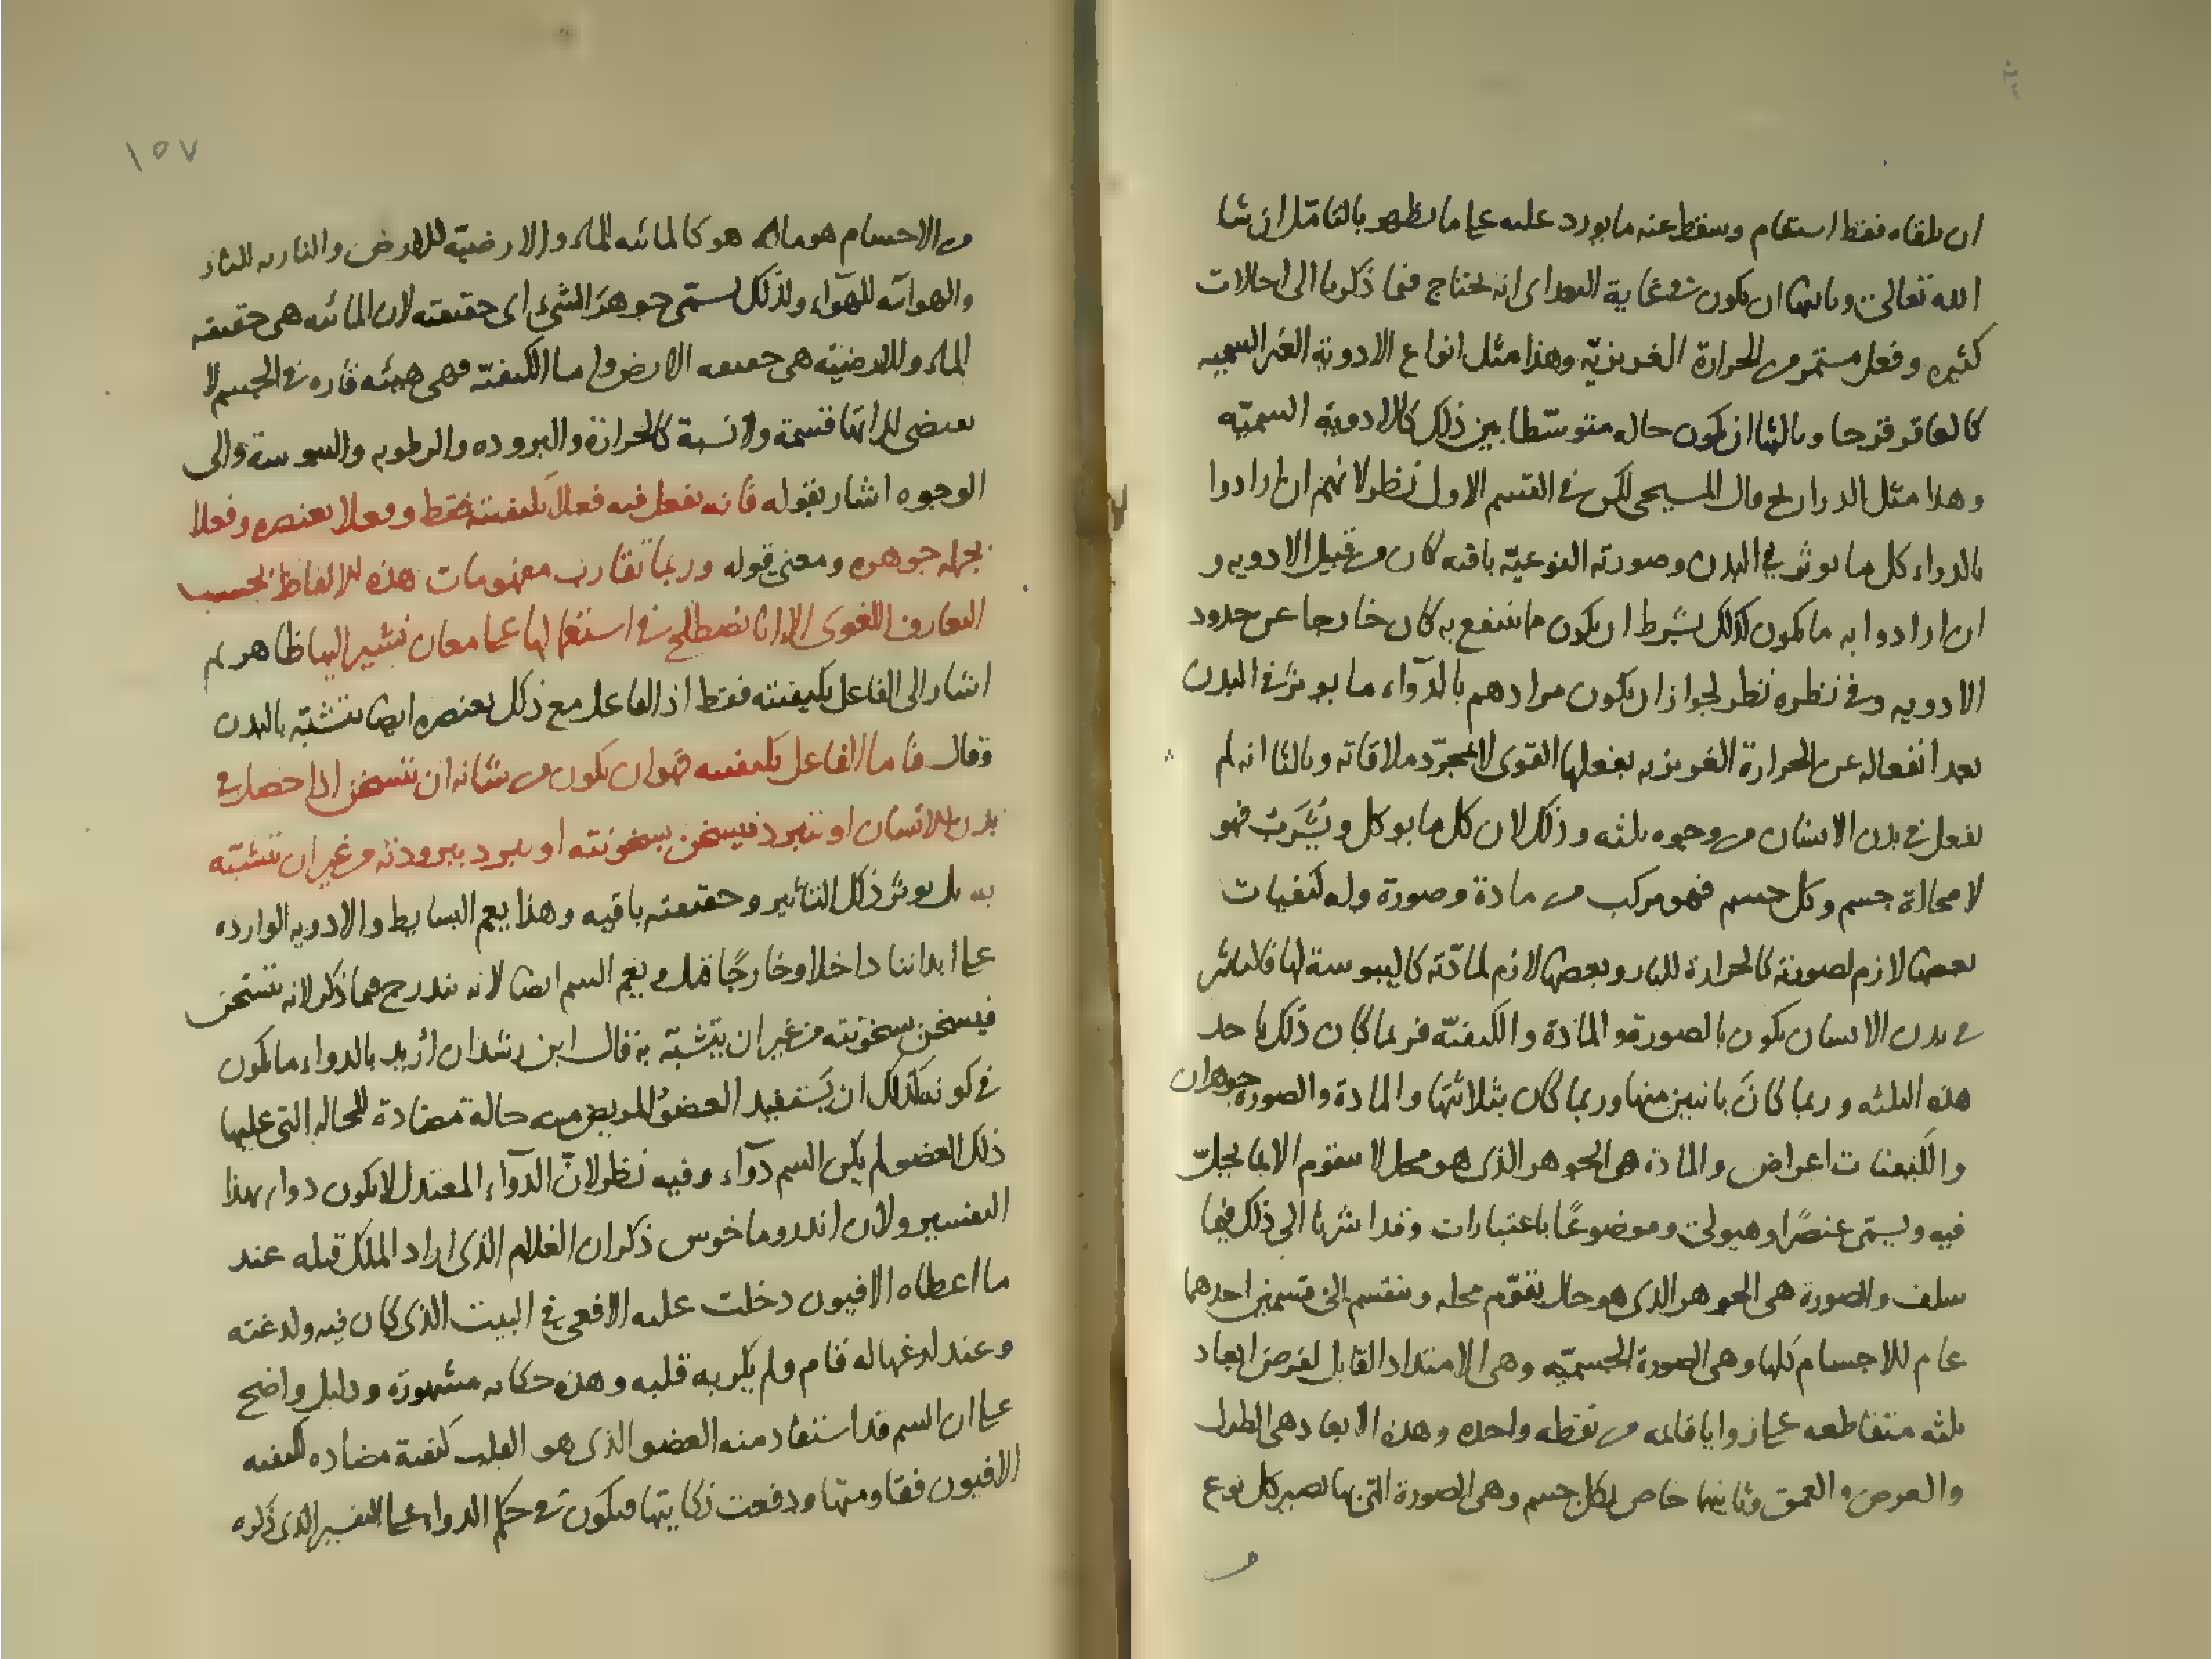 ان يلقاه فقط استقام وسقط عنه ما يورد عليه على ما يظهر بالتامّل ان شا
الله تعالى وثانيها ان يكون في غاية البعد اى انه يحتاج فيما ذكرنا الى احالات
كثيرة وفعل مستمر من الحرارة الغريزيّة وهذا مثل انواع الادوية الغير السميه
كالعاقر قرحا وثالثها ان يكون حاله متوسّطا بين ذلك كالادوية السميّه
وهذا مثل الذراريح قال المسيحى لكن فى القسم الاول نظر لانهم ان ارادوا
بالدواء كل ما يوثر في البدن وصورته النوعيّة باقيه كان من قبيل الادويه و
ان ارادوا به ما يكون كذلك بشرط ان يكون مما ينتفع به كان خارجا عن حدود
الادويه وفى نظره نظر لجواز ان يكون مرادهم بالدوآء ما يوثر فى البدن
بعد انفعاله عن الحرارة الغريزيه بفعلها القوى لا بمجرّد ملاقاته وثالثا انه لم
يفعل فى بدن الانسان من وجوه ثلثه وذلك لان كل ما يوكل ويُشرب فهو
لا محالة جسم وكل جسم فهو مركب من مادة وصورة وله كيفيات
بعضها لازم لصورته كالحرارة للنار وبعضها لازم لمادّته كاليبوسة لها فالتاثير
فى بدن الانسان يكون بالصورة والمادة والكيفيّة فربما كان ذلك باحد
هذه الثلثه وربما كان باثنين منها وربما كان بثلاثتها والمادة والصورة جوهران
والكيفيات اعراض والمادة هى الجوهر الذى هو محل لا يتقوم الا بما يحلّ
فيه ويسمّى عنصرًا وهيولى وموضوعًا باعتبارات وقد اشرنا الى ذلك فيما
سلف والصورة هى الجوهر الذى هو حال يتقوّم محله وينقسم الى قسمين احدهما
عام للاجسام كلها وهى الصورة الجسميّه وهى الامتداد القابل لفرض ابعاد
ثلثه متقاطعه على زوايا قائمه من نقطه واحده وهذه الابعاد هى الطول
والعرض والعمق وثانيهما خاص بكل جسم وهى الصورة التى بها يصير كل نوع
١٥٧
من الاجسام هو ما هو كالمائيه للماء والارضيّة للارض والناريه للنار
والهوائيه للهوآء ولذلك يسمّى جوهر الشىء اى حقيقته لان المائيه هى حقيقه
الماء والارضيّه هى حقيقه الارض واما الكيفيّه فهى هيئه قاره فى الجسم لا
يقتضى لذاتها قسمة ولا نسبة كالحرارة والبروده والرطوبه واليبوسة والى
الوجوه اشار بقوله فانه يفعل فيه فعلاً بكيفيته فقط وفعلا بعنصره وفعلا
بجمله جوهره ومعنى قوله وربما تقارب مفهومات هذه الالفاظ بحسب
التعارف اللغوى الا انا نصطلح فى استعمالها على معان نشير اليها ظاهر ثم
اشار الى الفاعل بكيفيته فقط اذ الفاعل مع ذلك بعنصره ايضا يتشبّه بالبدن
وقال فاما الفاعل بكيفيته فهو ان يكون من شانه ان يتسخن اذا حصل فى
بدن الانسان او يتبرد فيسخن بسخونته او يبرد ببرودته من غير ان يتشبّه
به بل يوثر ذلك التاثير وحقيقته باقيه وهذا يعم البسايط والادويه الوارده
على ابداننا داخلا وخارجًا ويعم السم ايضا لانه يندرج فيما ذكر لانه يتسخن
فيسخن بسخونته من غير ان يتشبّه به قال ابن رشد ان اُريد بالدواء ما يكون
فى كونه كذلك ان يستفيد العضوُ المريض منه حالة مضادة للحاله التى عليها
ذلك العضو لم يكن السم دوآء وفيه نظر لانّ الدوآء المعتدل لا يكون دواء بهذا
التفسير ولان اندروماخوس ذكر ان الغلام الذى اراد الملك قتله عند
ما اعطاه الافيون دخلت عليه الافعى فى البيت الذى كان فيه ولدغته
وعند لدغها له قام ولم يكن به قلبه وهذه حكايه مشهورة ودليل واضح
على ان السم قد استفاد منه العضو الذى هو القلب كيفية مضاده لكيفيه
الافيون فقاومتها ودفعت نكايتها فيكون فى حكم الدواء على التفسير الذى ذكره